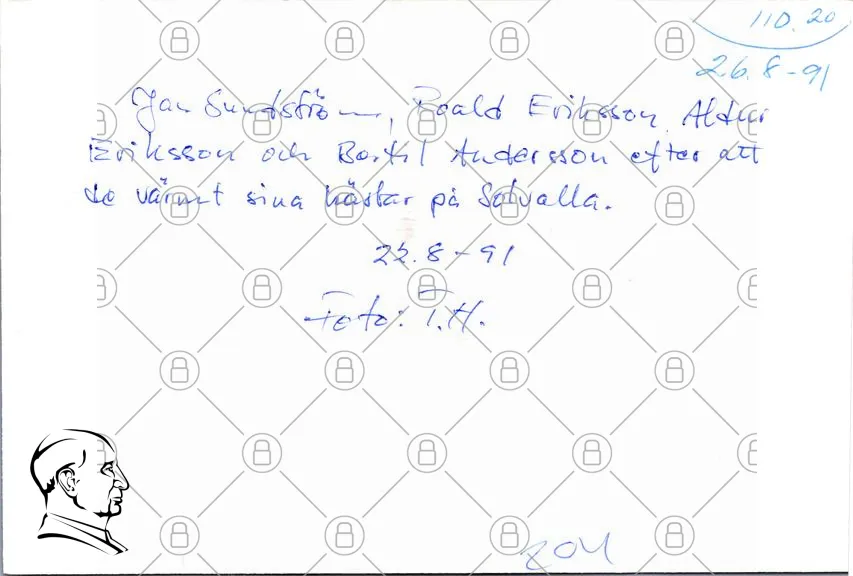 110.20
26.8-91
Jan Sundström, Roald Eriksson, Aldur
Eriksson och Bertil Andersson efter att
de värmt sina hästar på Solvalla.
22.8-91
Foto: T.H.
204